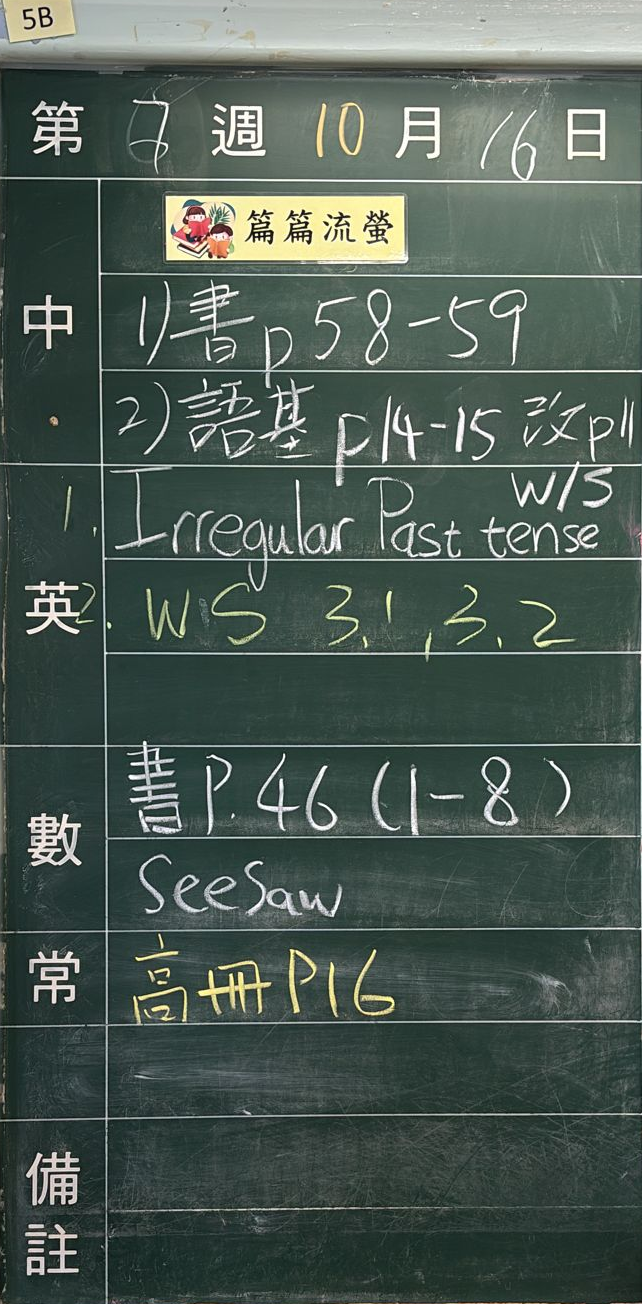 5B
第 7 週 10 月 16 日
篇篇流螢
中
1) 書 p 58-59
2) 語基 p14-15 改 p11
英
1. Irregular Past tense W/S
2. WS 3.1, 3.2
數
書 P.46 (1-8)
SeeSaw
常
高冊 P16
備註